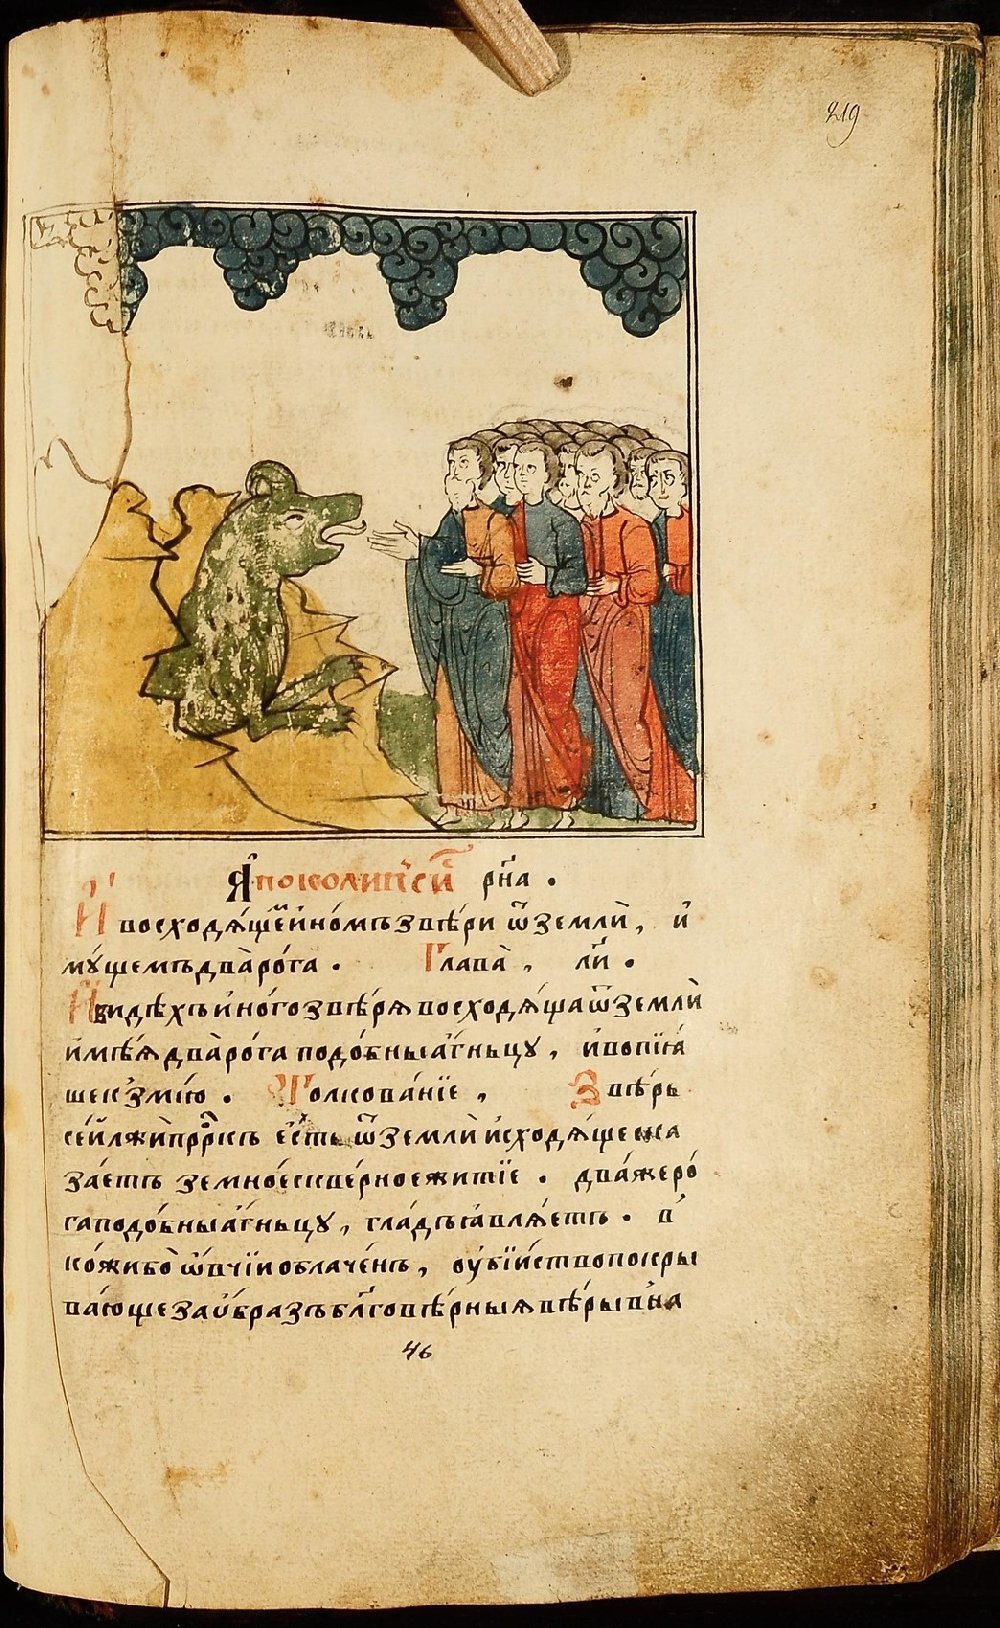 219
Апокалиѱсиⷭ҇ рн҃а .
И҆ восходѧ́щеⷨ҇ и҆но́мъ звѣ́ри ѿ землѝ , и҆
му́щемъ два̀ ро́га . Глава̀ , л҃и .
И҆ ви́дѣхъ и҆но́го звѣ́рѧ восходѧ́ща ѿ землѝ
и҆мѣ́ѧ два̀ ро́га подо́бны а҆́гньцу , и҆ вопїꙗ́
ше к̾ змі́ю . Толкова́нїе , Звѣ́рь
се́й лжи́ прⷪ҇ркъ є҆́сть ѿ землѝ и҆сходѧ́ще ска
за́етъ земно́е скве́рное житїе . два́ же ро́
га подо́бны а҆́гньцу , гла́дъ ꙗ҆влѧ́етъ . в̾
ко́жи бо̀ ѡ҆́вчїи ѡблаче́нъ , оу҆бїи́ство покры
ва́юще за ѻ҆́бразъ блⷢ҇овѣ́рныѧ вѣ́ры в̾ на
46